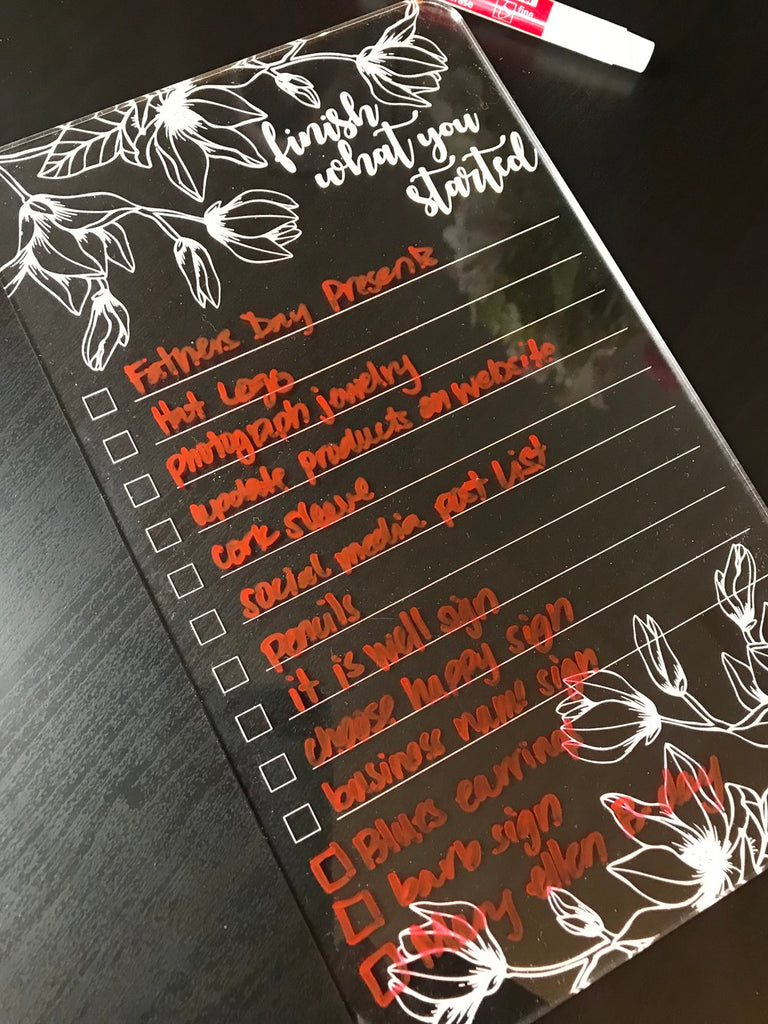 fine
finish
what you
started
Fathers Day Presents
Hat Logo
photograph jewelry
update products on website
cork sleeve
social media post List
pencils
it is well sign
choose happy sign
business name sign
Blues earrings
barb sign
Mary ellen B-day